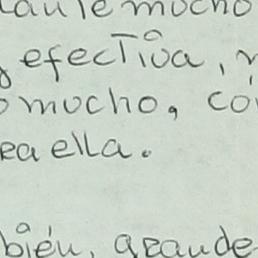 mucho
efectiva,
mucho, có
ea ella.
bién, grande